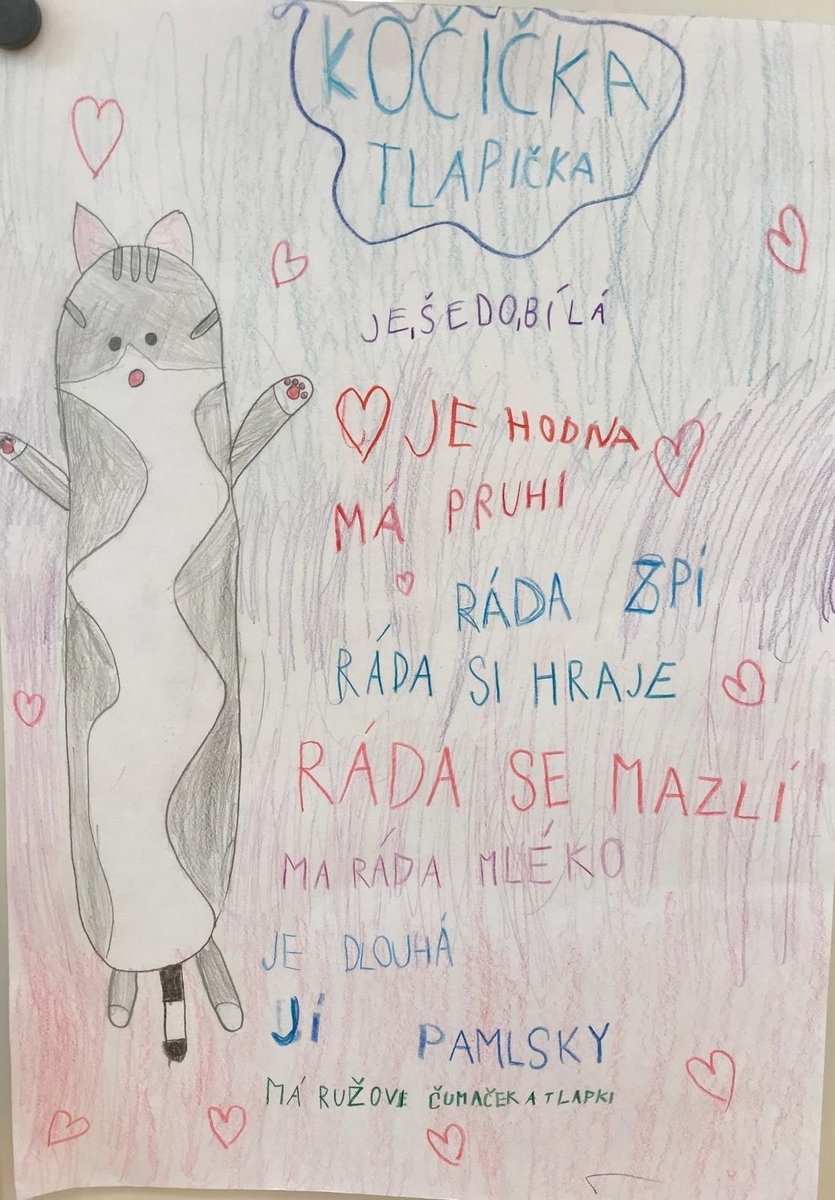 KOČIČKA
TLAPIČKA
JE,ŠEDO,BÍLÁ
JE HODNA
MÁ PRUHI
RÁDA SPÍ
RÁDA SI HRAJE
RÁDA SE MAZLÍ
MA RÁDA MLÉKO
JE DLOUHÁ
JÍ PAMLSKY
MÁ RUŽOVE ČUMAČEK A TLAPKI